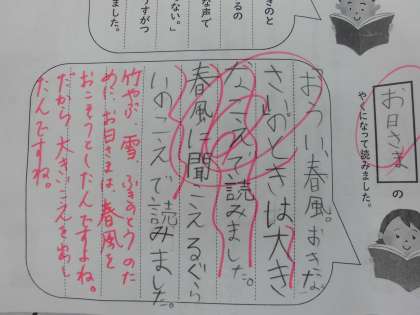 きのと
るの
な声で
ない。」
うすがつ
ました。
お日さま の
やくになって読みました。
「おうい、春風。おきな
さい」のときは大き
なこえで読みました。
春風に聞こえるぐら
いのこえで読みました。
竹やぶ、雪、ふきのとうのた
めに、お日さまは、春風を
おこそうとしたんですよね。
だから、大きなこえを出し
たんですね。